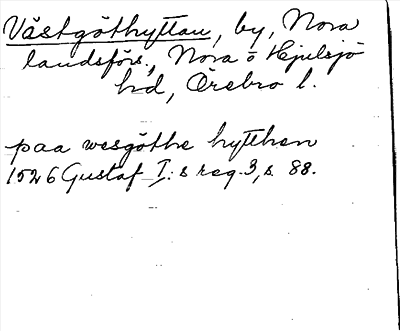 Västgöthyttan, by, Nora
landsförs., Nora o Hjulsjö
hd, Örebro l.
paa wesgöthe hytthen
1526 Gustaf I:s reg. 3, s. 88.